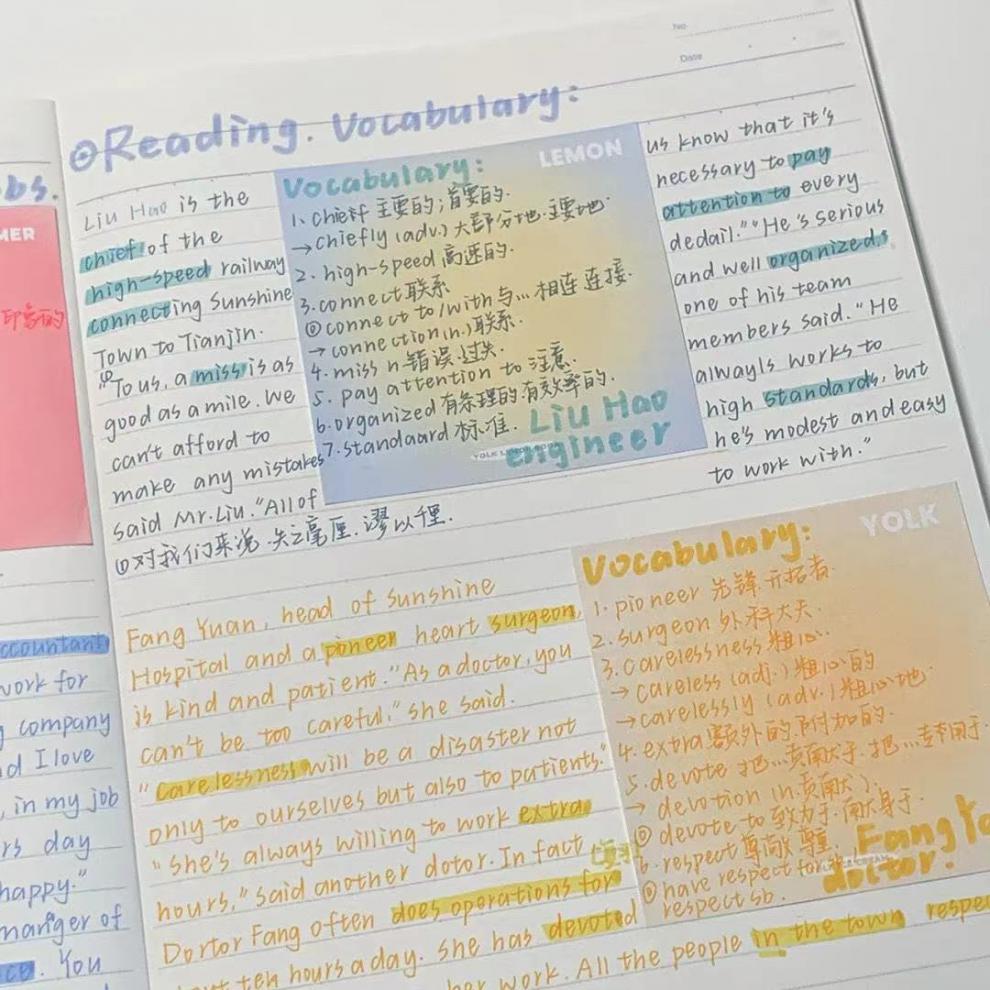 No.
Date
Reading. Vocabulary:
Liu Hao is the
chief of the
high-speed railway
connecting Sunshine
Town to Tianjin.
①"To us, a miss is as
good as a mile. We
can't afford to
make any mistakes
said Mr. Liu. "All of
①对我们来说.失之毫厘.谬以千里.
LEMON
Vocabulary:
1. chief 主要的;首要的.
→chiefly (adv.) 大部分地.主要地.
2. high-speed 高速的.
3. connect 联系
◎connect to/with 与...相连 连接.
→ connection (n.) 联系.
4. miss n. 错误.过失.
5. pay attention to 注意.
6. organized 有条理的.有效率的.
7. standaard 标准.
Liu Hao
engineer
us know that it's
necessary to pay
attention to every
dedail." "He's serious
and well organized,
one of his team
members said. "He
alwayls works to
high standards, but
he's modest and easy
to work with."
Fang Yuan, head of Sunshine
Hospital and a pioneer heart surgeon,
is kind and patient. "As a doctor, you
can't be too careful," she said.
"carelessness will be a disaster not
only to ourselves but also to patients."
"She's always willing to work extra
hours," said another dotor. In fact
Dortor Fang often does operations for
ten hours a day. She has devoted
her work. All the people in the town respec
YOLK
Vocabulary:
1. pioneer 先锋.开拓者.
2. surgeon 外科大夫.
3. carelessness 粗心.
→ careless (adj.) 粗心的
→carelessly (adv.) 粗心地.
4. extra 额外的.附加的.
5. devote 把...贡献于.把...专用于
→ devotion (n. 贡献).
◎ devote to 致力于.献身于.
6. respect 尊敬.尊重.
◎ have respect for
respect sb.
Fang Y
doctor.
obs.
MER
印象的
ccountant
work for
company
d I love
, in my job
rs day
happy."
manger of
ce. You